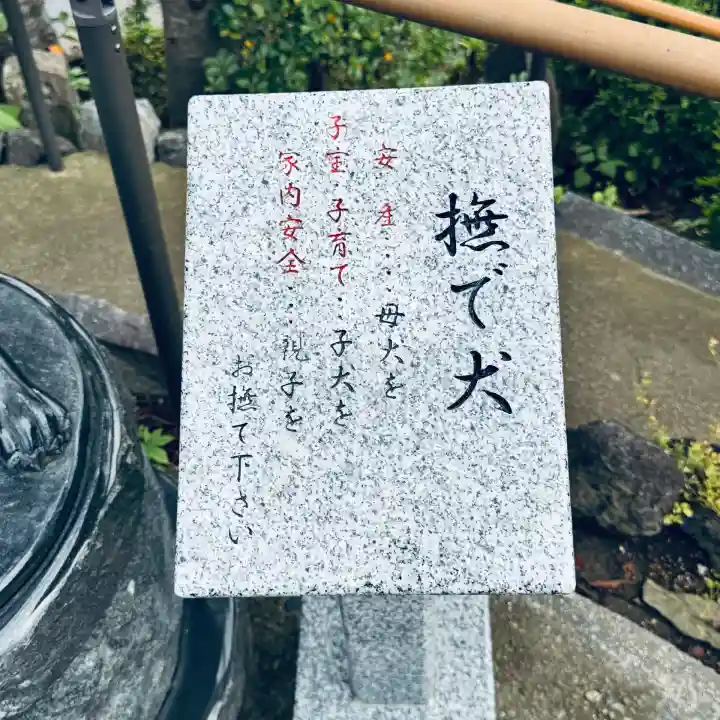 撫で犬
安産・・・母犬を
子宝・子育て・・子犬を
家内安全・・親子を
お撫で下さい